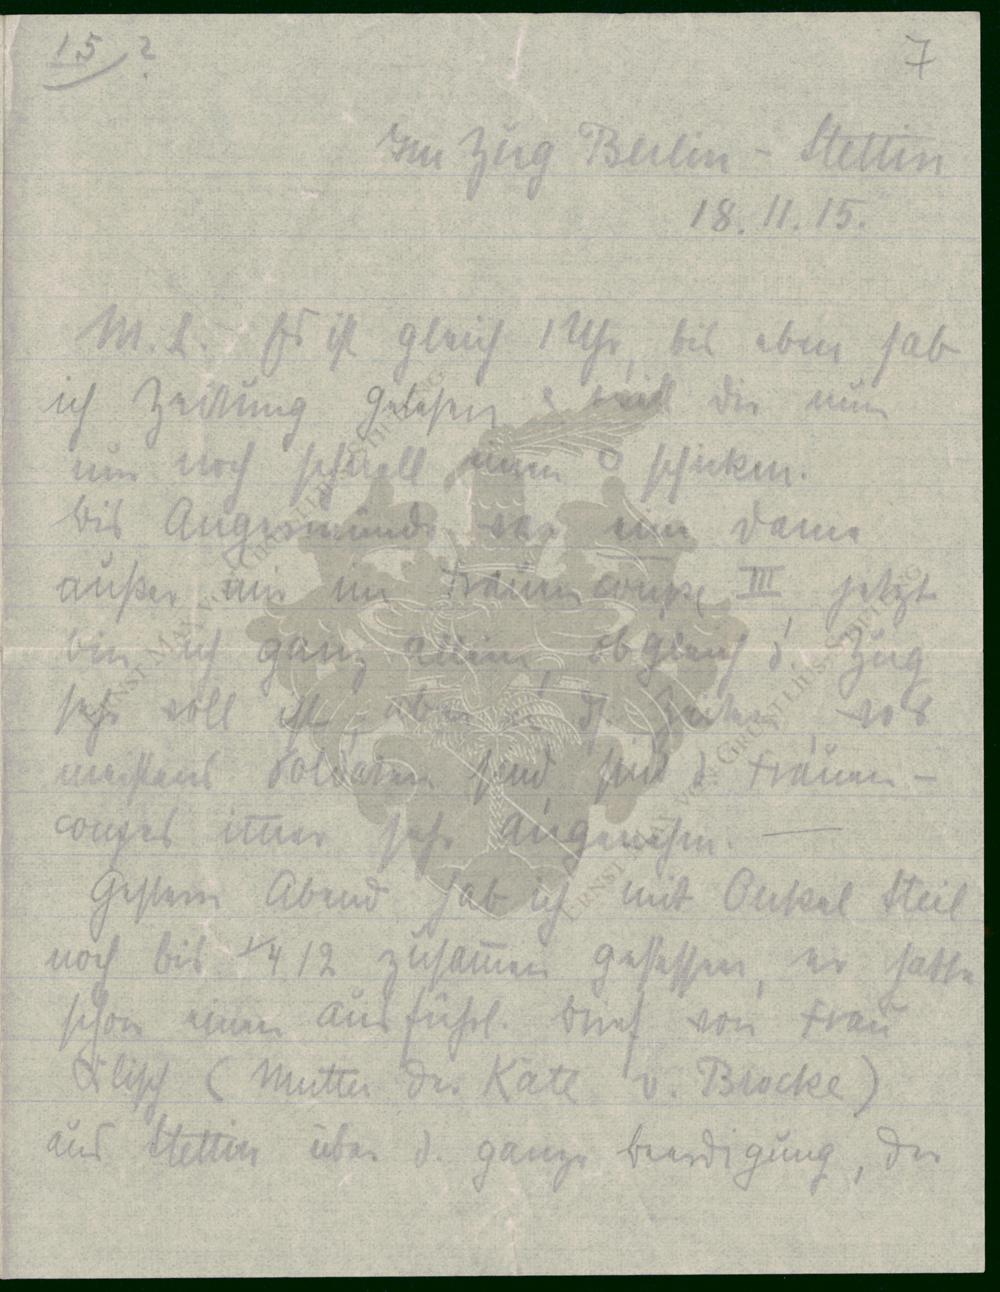 15 ?
7
Im Zug Berlin – Stettin
18.11.15.
M. L. Es ist gleich 1 Uhr, bis eben hab
ich Zeitung gelesen & will dir nun
nur noch schnell einen o schicken.
Bis Angermünde war eine Dame
außer mir im Frauencoupe III, jetzt
bin ich ganz allein, obgleich d. Zug
sehr voll ist, aber d. Zeiten, wo
meistens Soldaten sind, sind d. Frauen-
coupes immer sehr angenehm. —
Gestern Abend hab ich mit Onkel Steil
noch bis 1/4 12 zusammen gesessen, er hatte
schon einen ausführl. Brief von Frau
(Mutter der Käte v. Brocke)
aus Stettin über d. ganze Beerdigung, der
ERNST MAX VON GROTTHUSS-SCHILLING
ERNST MAX VON GROTTHUSS-SCHILLING